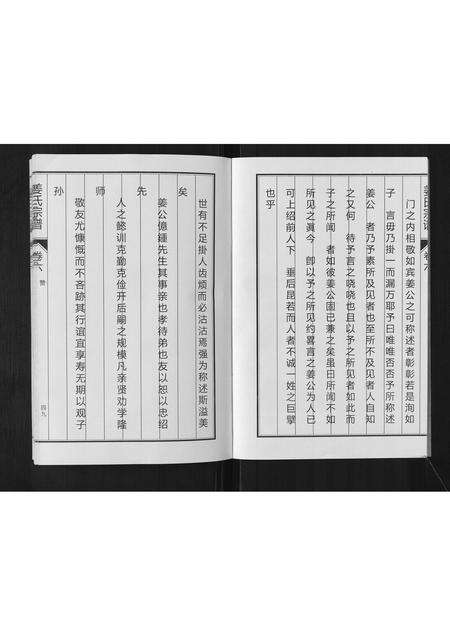 门之内相敬如宾姜公之可称述者彰彰若是洵如
子 言毋乃掛一而漏万耶予曰唯唯否否予所称述
姜公 者乃予素所及见者也至所不及见者人自知
之又何 待予言之哓哓也且以予之所见者如此而
子之所闻 者如彼姜公固已兼之矣虽曰所闻不如
所见之真今 即以予之所见约畧言之姜公为人已
可上绍前人下 垂后昆若而人者不诚一姓之巨擘
也乎
姜氏宗谱 卷六
世有不足掛人齿颊而必沾沾焉强为称述斯溢美
矣
姜公億鍾先生其事亲也孝待弟也友以恕以忠绍
先
人之懿训克勤克俭开后嗣之规模凡亲贤劝学隆
师
敬友尤慷慨而不吝跡其行谊宜享寿无期以观子
孙
姜氏宗谱 卷六 赞 四九